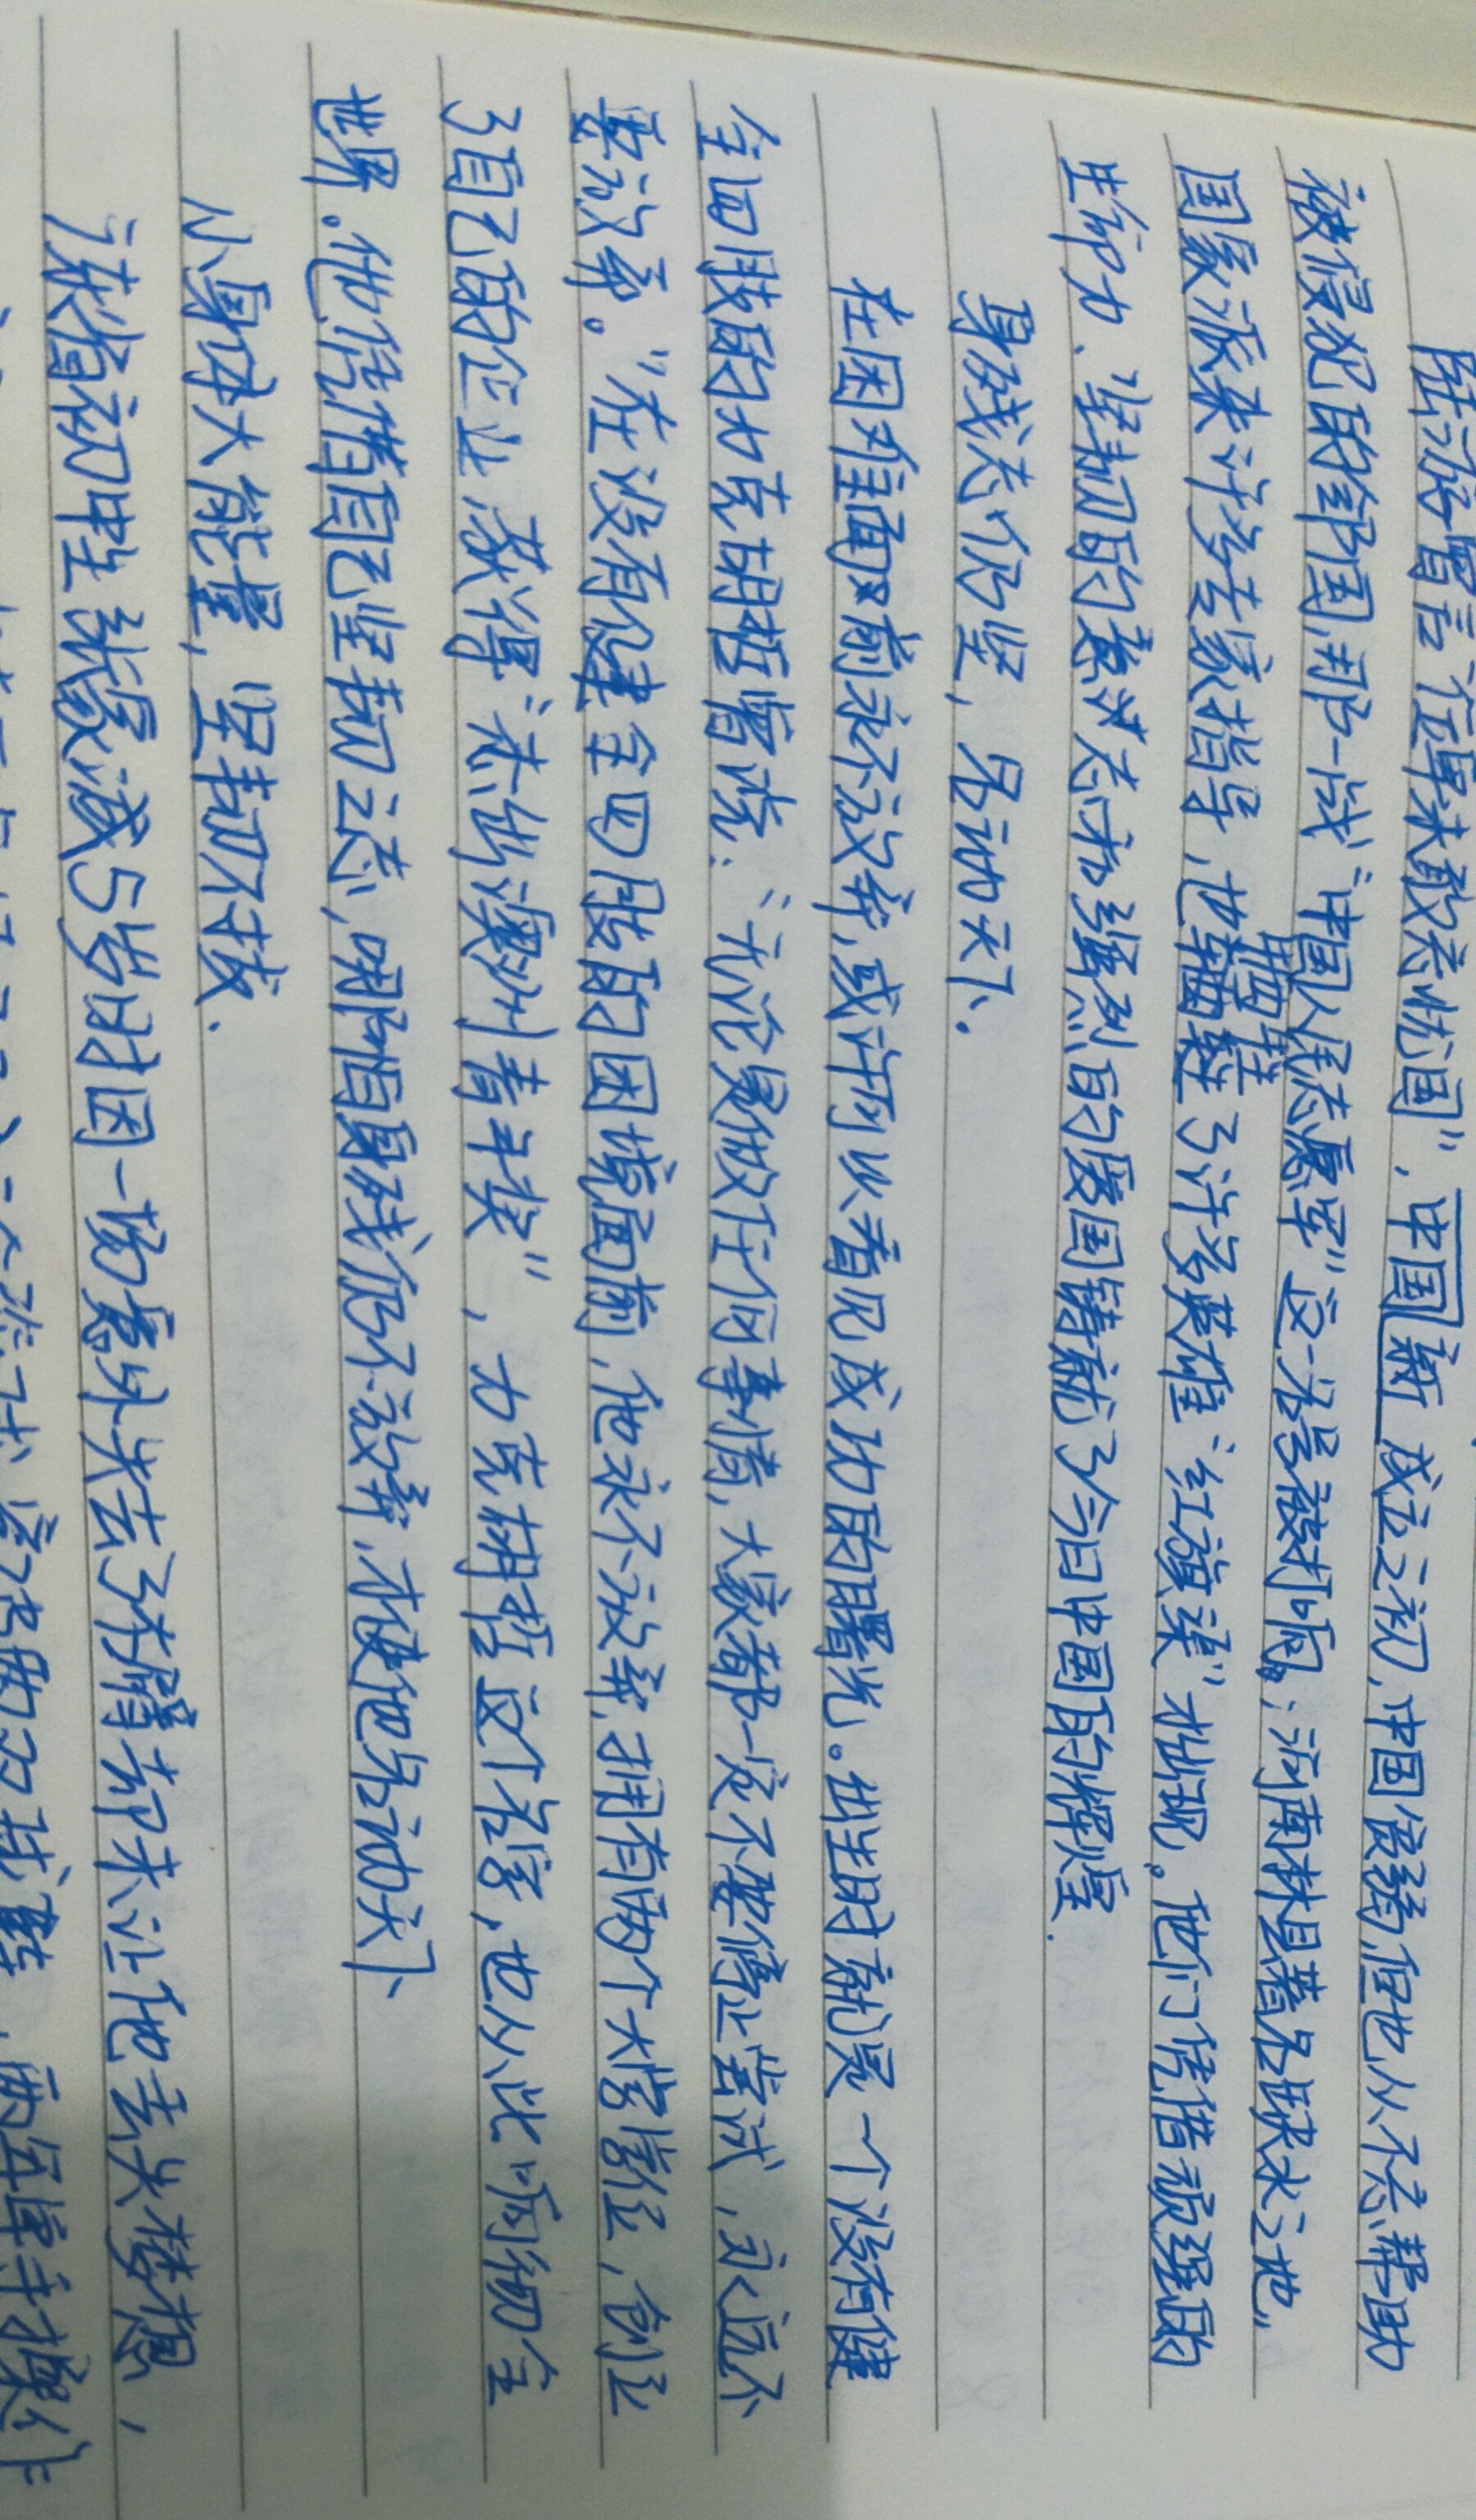 陆游曾言“位卑未敢忘忧国”，中国新成立之初，中国貧弱，但也从不忘帮助
被侵犯的邻国，那一战“中国人民志愿军”这一名号被打响；河南林县着名缺水之地，
国家派来许多专家指导，也辐射了许多英雄“红旗渠”才出现。他们凭借顽强的
生命力、坚韧的意志和强烈的爱国铸就了今日中国的辉煌.
身残志仍坚，名动天下.
在困难面前永不放弃，或许可以看见成功的曙光。出生时就是一个没有健
全四肢的力克胡哲曾说：“无论是做任何事情，大家都一定不要停止尝试，永远不
要放弃。”在没有健全四肢的困境面前，他永不放弃，拥有两个大学学位，创立
了自己的企业，获得“杰出澳洲青年奖”，力克胡哲这个名字，也从此响彻全
世界。他凭借自己坚韧之志，哪怕身残仍不放弃，才使他名动天下
小身体大能量，坚韧不拔.
读省初中生张家诚5岁时因一场意外失去了右臂却未让他丢失梦想，